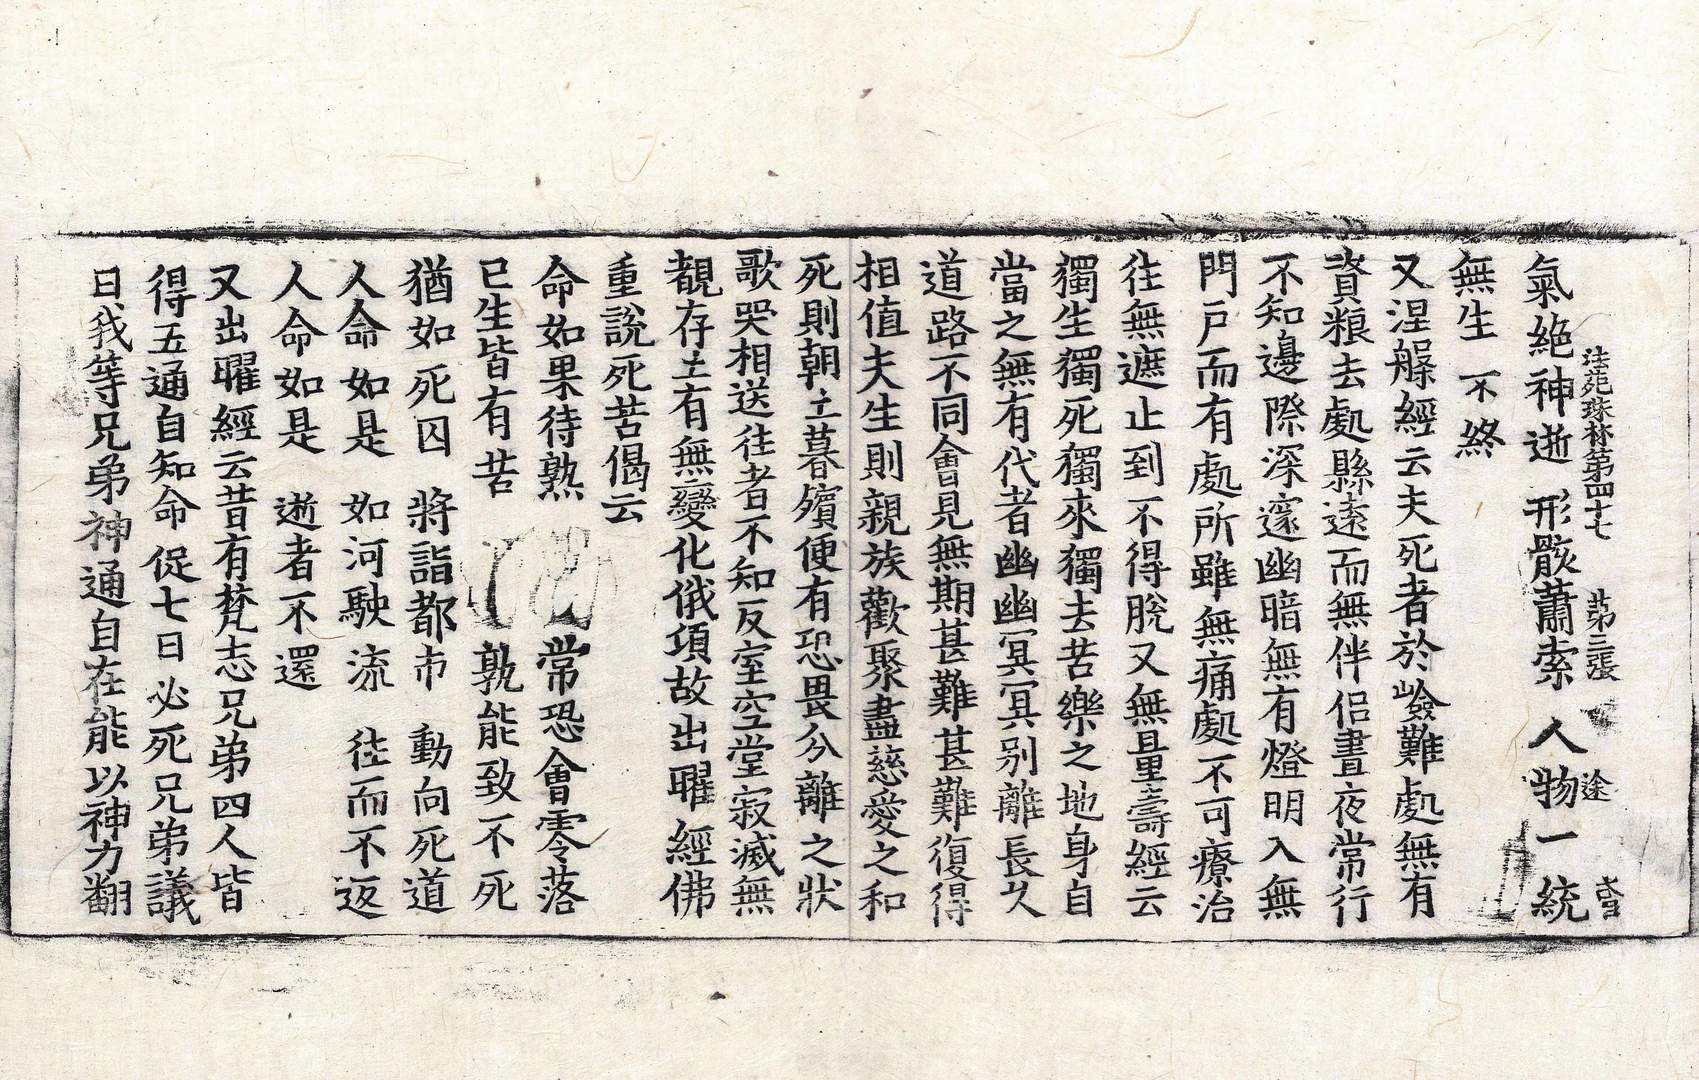 法苑珠林第四十七 第三張 途
氣絶神逝 形骸蕭索 人物一統
無生不終
又涅槃經云夫死者於嶮難處無有
資粮去處縣遠而無伴侣晝夜常行
不知邊際深邃幽暗無有燈明入無
門戸而有處所雖無痛處不可療治
往無遮止到不得脫又無量壽經云
獨生獨死獨來獨去苦樂之地身自
當之無有代者幽幽冥冥别離長久
道路不同會見無期甚難甚難復得
相值夫生則親族歡聚盡慈愛之和
死則朝亡暮殯便有恐畏分離之狀
歌哭相送往者不知反室空堂寂滅無
覩存亡有無變化俄頃故出曜經佛
重說死苦偈云
命如果待熟 常恐會零落
已生皆有苦 孰能致不死
猶如死囚 將詣都市 動向死道
人命如是 如河駛流 往而不返
人命如是 逝者不還
又出曜經云昔有梵志兄弟四人皆
得五通自知命促七日必死兄弟議
曰我等兄弟神通自在能以神力翻